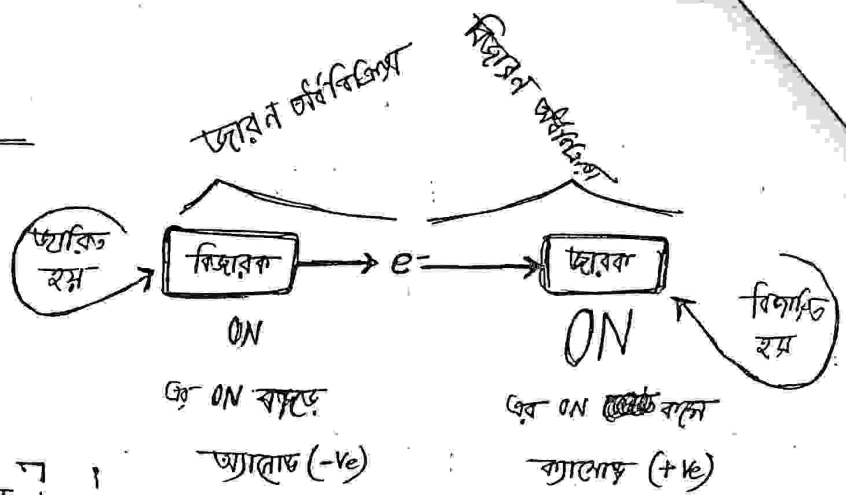 জারন অর্ধবিক্রিয়া
বিজারন অর্ধবিক্রিয়া
জারিত
হয়
বিজারক
e-
জারক
বিজারিত
হয়
ON
ON
এর ON বাড়ে
এর ON কমে
অ্যানোড (-ve)
ক্যাথোড (+ve)